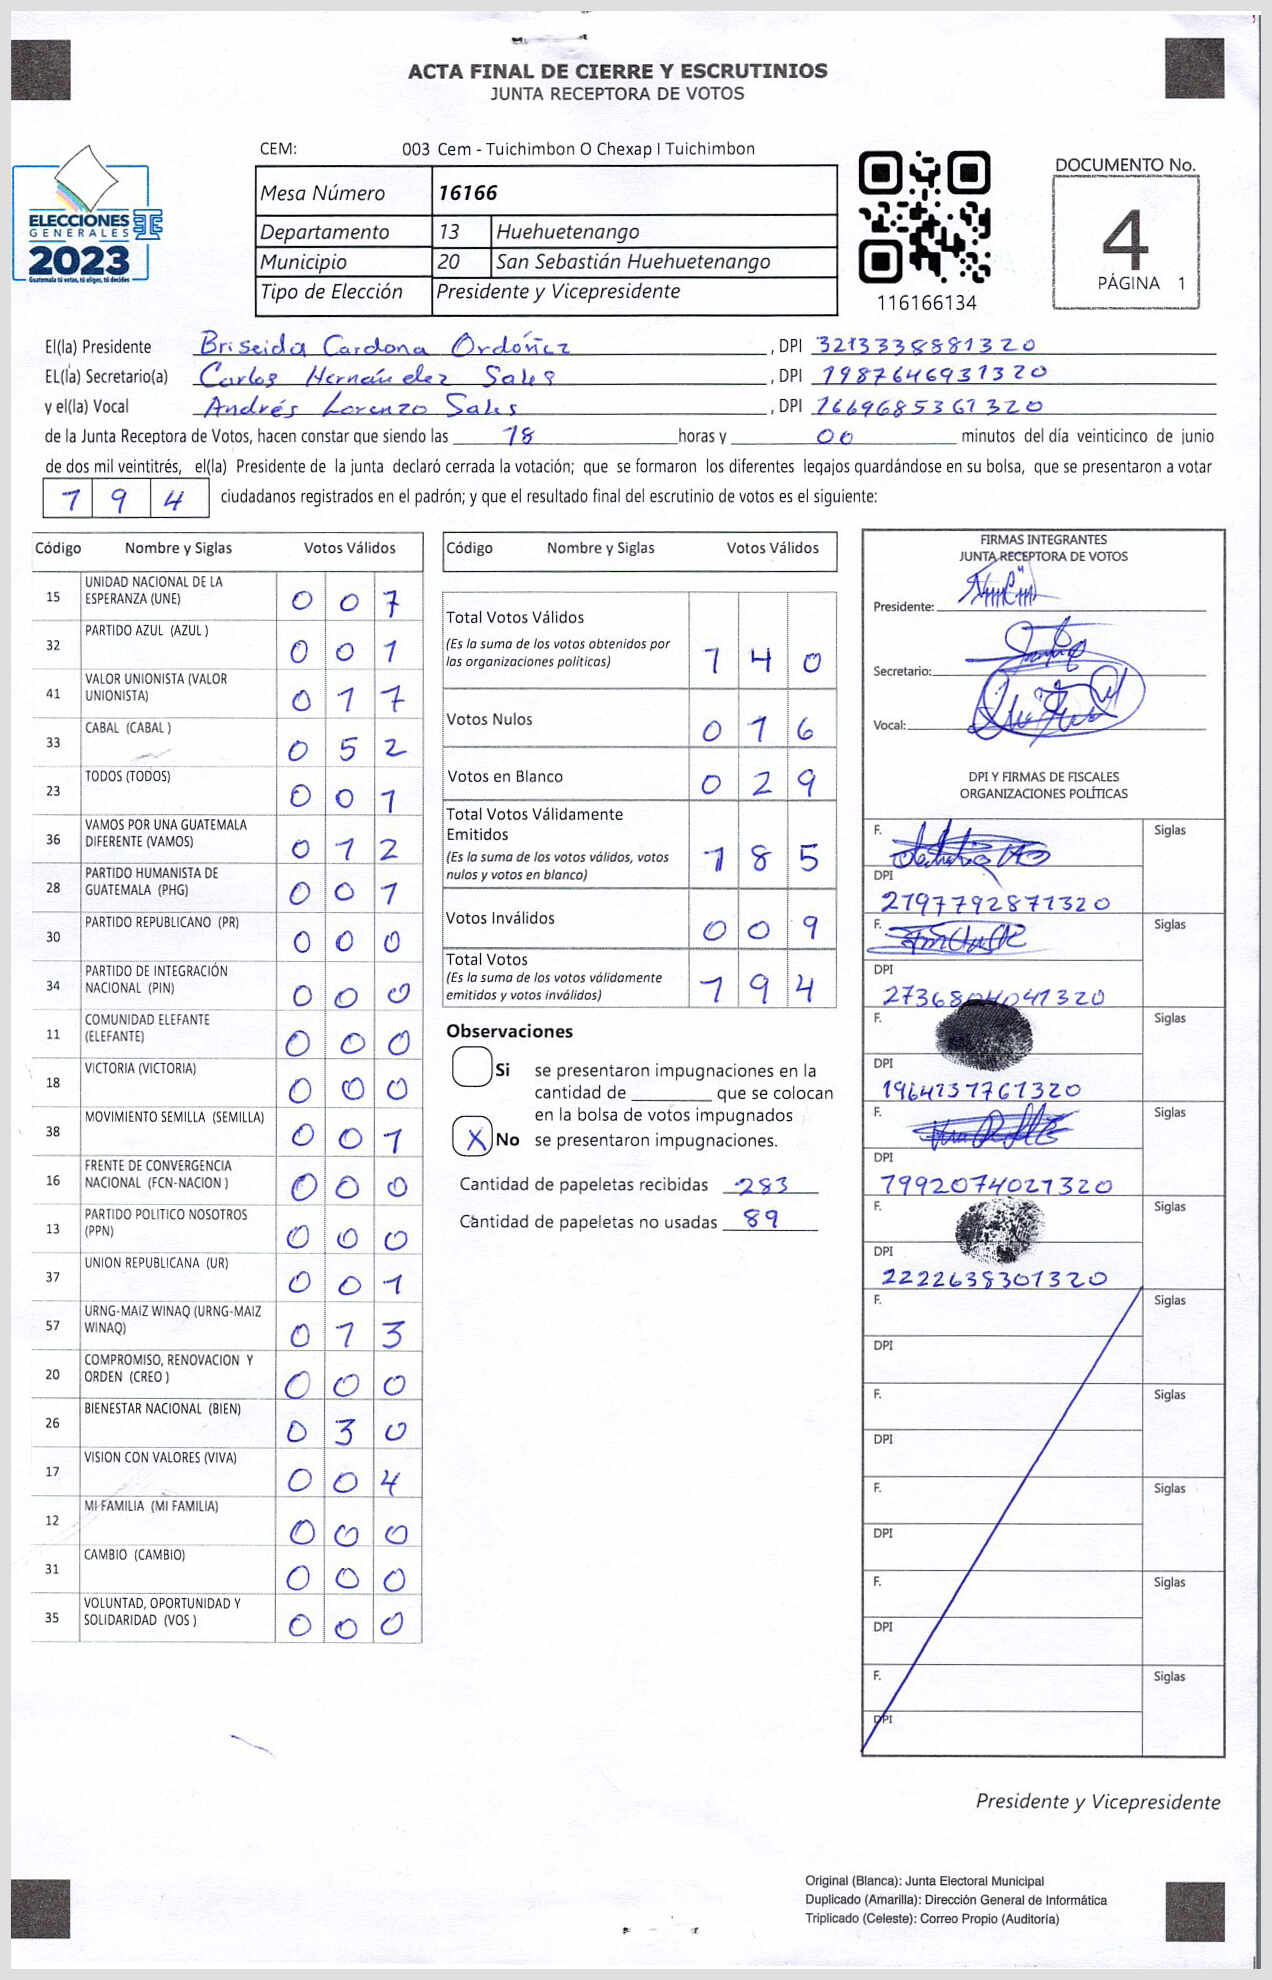 ACTA FINAL DE CIERRE Y ESCRUTINIOS
JUNTA RECEPTORA DE VOTOS
ELECCIONES
GENERALES
2023
Guatemala tú votas, tú eliges, tú decides
CEM: 003 Cem - Tuichimbon O Chexap I Tuichimbon
Mesa Número 16166
Departamento 13 Huehuetenango
Municipio 20 San Sebastián Huehuetenango
Tipo de Elección Presidente y Vicepresidente
116166134
DOCUMENTO No.
4
PÁGINA 1
El(la) Presidente Briseida Cardona Ordóñez, DPI 3213338881320
EL(la) Secretario(a) Carlos Hernández Sales, DPI 1987646931320
y el(la) Vocal Andrés Lorenzo Sales, DPI 1669685361320
de la Junta Receptora de Votos, hacen constar que siendo las 18 horas y 00 minutos del día veinticinco de junio
de dos mil veintitrés, el(la) Presidente de la junta declaró cerrada la votación; que se formaron los diferentes legajos guardándose en su bolsa, que se presentaron a votar
1 9 4 ciudadanos registrados en el padrón; y que el resultado final del escrutinio de votos es el siguiente:
Código Nombre y Siglas Votos Válidos
15 UNIDAD NACIONAL DE LA ESPERANZA (UNE) 0 0 7
32 PARTIDO AZUL (AZUL ) 0 0 1
41 VALOR UNIONISTA (VALOR UNIONISTA) 0 1 7
33 CABAL (CABAL ) 0 5 2
23 TODOS (TODOS) 0 0 1
36 VAMOS POR UNA GUATEMALA DIFERENTE (VAMOS) 0 1 2
28 PARTIDO HUMANISTA DE GUATEMALA (PHG) 0 0 1
30 PARTIDO REPUBLICANO (PR) 0 0 0
34 PARTIDO DE INTEGRACIÓN NACIONAL (PIN) 0 0 0
11 COMUNIDAD ELEFANTE (ELEFANTE) 0 0 0
18 VICTORIA (VICTORIA) 0 0 0
38 MOVIMIENTO SEMILLA (SEMILLA) 0 0 1
16 FRENTE DE CONVERGENCIA NACIONAL (FCN-NACION ) 0 0 0
13 PARTIDO POLITICO NOSOTROS (PPN) 0 0 0
37 UNION REPUBLICANA (UR) 0 0 1
57 URNG-MAIZ WINAQ (URNG-MAIZ WINAQ) 0 1 3
20 COMPROMISO, RENOVACION Y ORDEN (CREO ) 0 0 0
26 BIENESTAR NACIONAL (BIEN) 0 3 0
17 VISION CON VALORES (VIVA) 0 0 4
12 MI FAMILIA (MI FAMILIA) 0 0 0
31 CAMBIO (CAMBIO) 0 0 0
35 VOLUNTAD, OPORTUNIDAD Y SOLIDARIDAD (VOS ) 0 0 0
Código Nombre y Siglas Votos Válidos
Total Votos Válidos
(Es la suma de los votos obtenidos por
las organizaciones políticas) 1 4 0
Votos Nulos 0 1 6
Votos en Blanco 0 2 9
Total Votos Válidamente
Emitidos
(Es la suma de los votos válidos, votos
nulos y votos en blanco) 1 8 5
Votos Inválidos 0 0 9
Total Votos
(Es la suma de los votos válidamente
emitidos y votos inválidos) 1 9 4
Observaciones
Si se presentaron impugnaciones en la
cantidad de ________ que se colocan
en la bolsa de votos impugnados
X No se presentaron impugnaciones.
Cantidad de papeletas recibidas 283
Cantidad de papeletas no usadas 89
FIRMAS INTEGRANTES
JUNTA RECEPTORA DE VOTOS
Presidente:
Secretario:
Vocal:
DPI Y FIRMAS DE FISCALES
ORGANIZACIONES POLÍTICAS
F. Siglas
DPI
2197792871320
F. Siglas
DPI
2736804041320
F. Siglas
DPI
1964137761320
F. Siglas
DPI
1992074021320
F. Siglas
DPI
2222638301320
F. Siglas
DPI
F. Siglas
DPI
F. Siglas
DPI
F. Siglas
DPI
F. Siglas
DPI
Presidente y Vicepresidente
Original (Blanca): Junta Electoral Municipal
Duplicado (Amarilla): Dirección General de Informática
Triplicado (Celeste): Correo Propio (Auditoría)